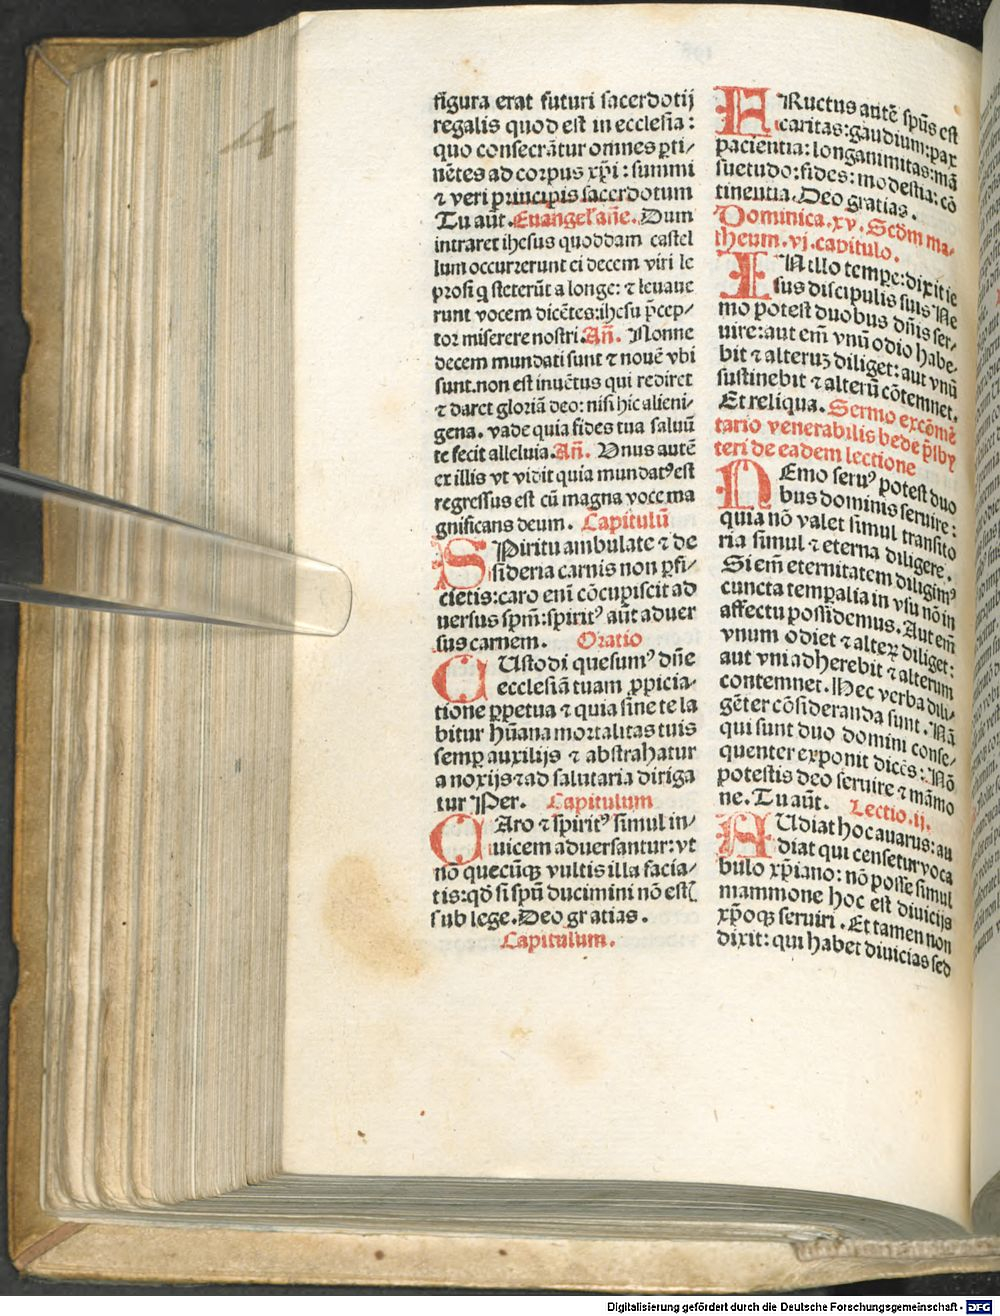 figura erat futuri sacerdotij
regalis quod est in ecclesia:
quo consecrātur omnes ꝑti⸗
nētes ad corpus xp̄i: summi
⁊ veri principis sacerdotum
Tu aūt. Euangel' añe. Dum
intraret ihesus quoddam castel
lum occurrerunt ei decem viri le
prosi q steterūt a longe: ⁊ leuaue
runt vocem dicētes: ihesu p̄cep⸗
tor miserere nostri. Añ. Nonne
decem mundati sunt ⁊ nouē vbi
sunt. non est inuētus qui rediret
⁊ daret gloriā deo: nisi hic alieni⸗
gena. vade quia fides tua saluū
te fecit alleluia. Añ. Vnus autē
ex illis vt vidit quia mundatꝰ est
regressus est cū magna voce ma
gnificans deum. Capitulū
SPiritu ambulate ⁊ de
sideria carnis non ꝑfi⸗
cietis: caro eni cōcupiscit ad
uersus spm̄: spiritꝰ aūt aduer
sus carnem. Oratio
CUstodi quesumꝰ dn̄e
ecclesiā tuam ꝓpicia⸗
tione ꝑpetua ⁊ quia sine te la
bitur hūana mortalitas tuis
semꝑ auxilijs ⁊ abstrahatur
a noxijs ⁊ ad salutaria diriga
tur Per. Capitulum
CAro ⁊ spiritꝰ simul in⸗
uicem aduersantur: vt
nō quecūqꝫ vultis illa facia⸗
tis: qd̄ si spū ducimini nō est
sub lege. Deo gratias.
Capitulum.
FRuctus autē sp̄us est
caritas: gaudium: pax
pacientia: longanimitas: mā
suetudo: fides: modestia: cō
tinentia. Deo gratias.
Dominica. xv. Scd̄m ma⸗
theum. vj. capitulo.
IN illo tempe: dixit ie
sus discipulis suis Ne
mo potest duobus dn̄is ser⸗
uire: aut em̄ vnū odio habe⸗
bit ⁊ alteruꝫ diliget: aut vnū
sustinebit ⁊ alterū cōtemnet.
Et reliqua. Sermo ex cōmē
tario venerabilis bede p̄sby
teri de eadem lectione
NEmo seruꝰ potest duo
bus dominis seruire:
quia nō valet simul transito
ria simul ⁊ eterna diligere.
Si em̄ eternitatem diligimꝰ
cuncta temꝑalia in vsu nō in
affectu possidemus. Aut em̄
vnum odiet ⁊ alteꝝ diliget:
aut vni adherebit ⁊ alterum
contemnet. Hec verba dili⸗
gēter cōsideranda sunt. Nā
qui sunt duo domini conse⸗
quenter exponit dicēs: Nō
potestis deo seruire ⁊ māmo
ne. Tu aūt. Lectio. ij.
AUdiat hoc auarus: au
diat qui censetur voca
bulo xp̄iano: nō posse simul
mammone hoc est diuicijs
xp̄oqꝫ seruiri. Et tamen non
dixit: qui habet diuicias sed
Digitalisierung gefördert durch die Deutsche Forschungsgemeinschaft - DFG